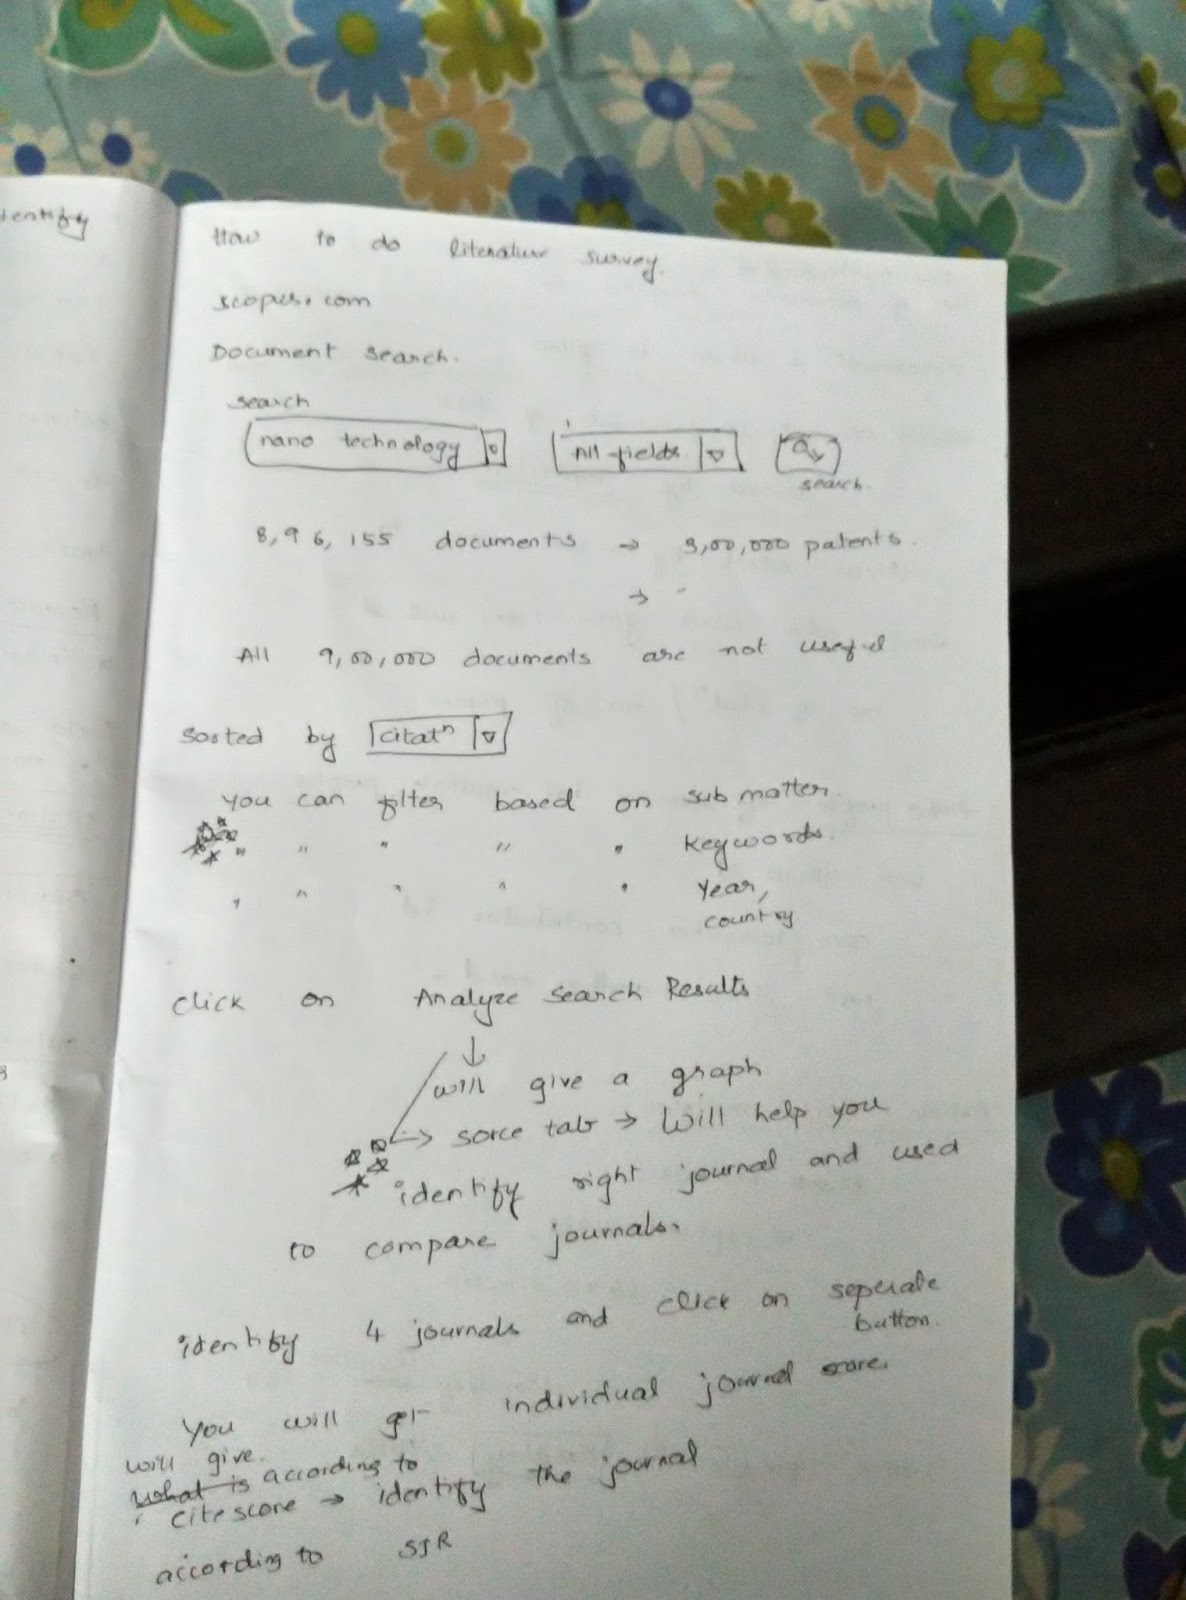 tentify
How to do literature survey.
scopus.com
Document search.
search
nano technology
All fields
search
8,96,155 documents → 3,00,000 patents.
→ "
All 9,00,000 documents are not useful
Sorted by citatn
you can filter based on sub matter.
" " " " " keywords.
" " " " " Year,
country
click on Analyze Search Results
↓
will give a graph
→ sorce tab → Will help you
identify right journal and used
to compare journals.
identify 4 journals and click on seperate
button.
You will get individual journal score.
will give.
what is according to
citescore → identify the journal
according to SJR